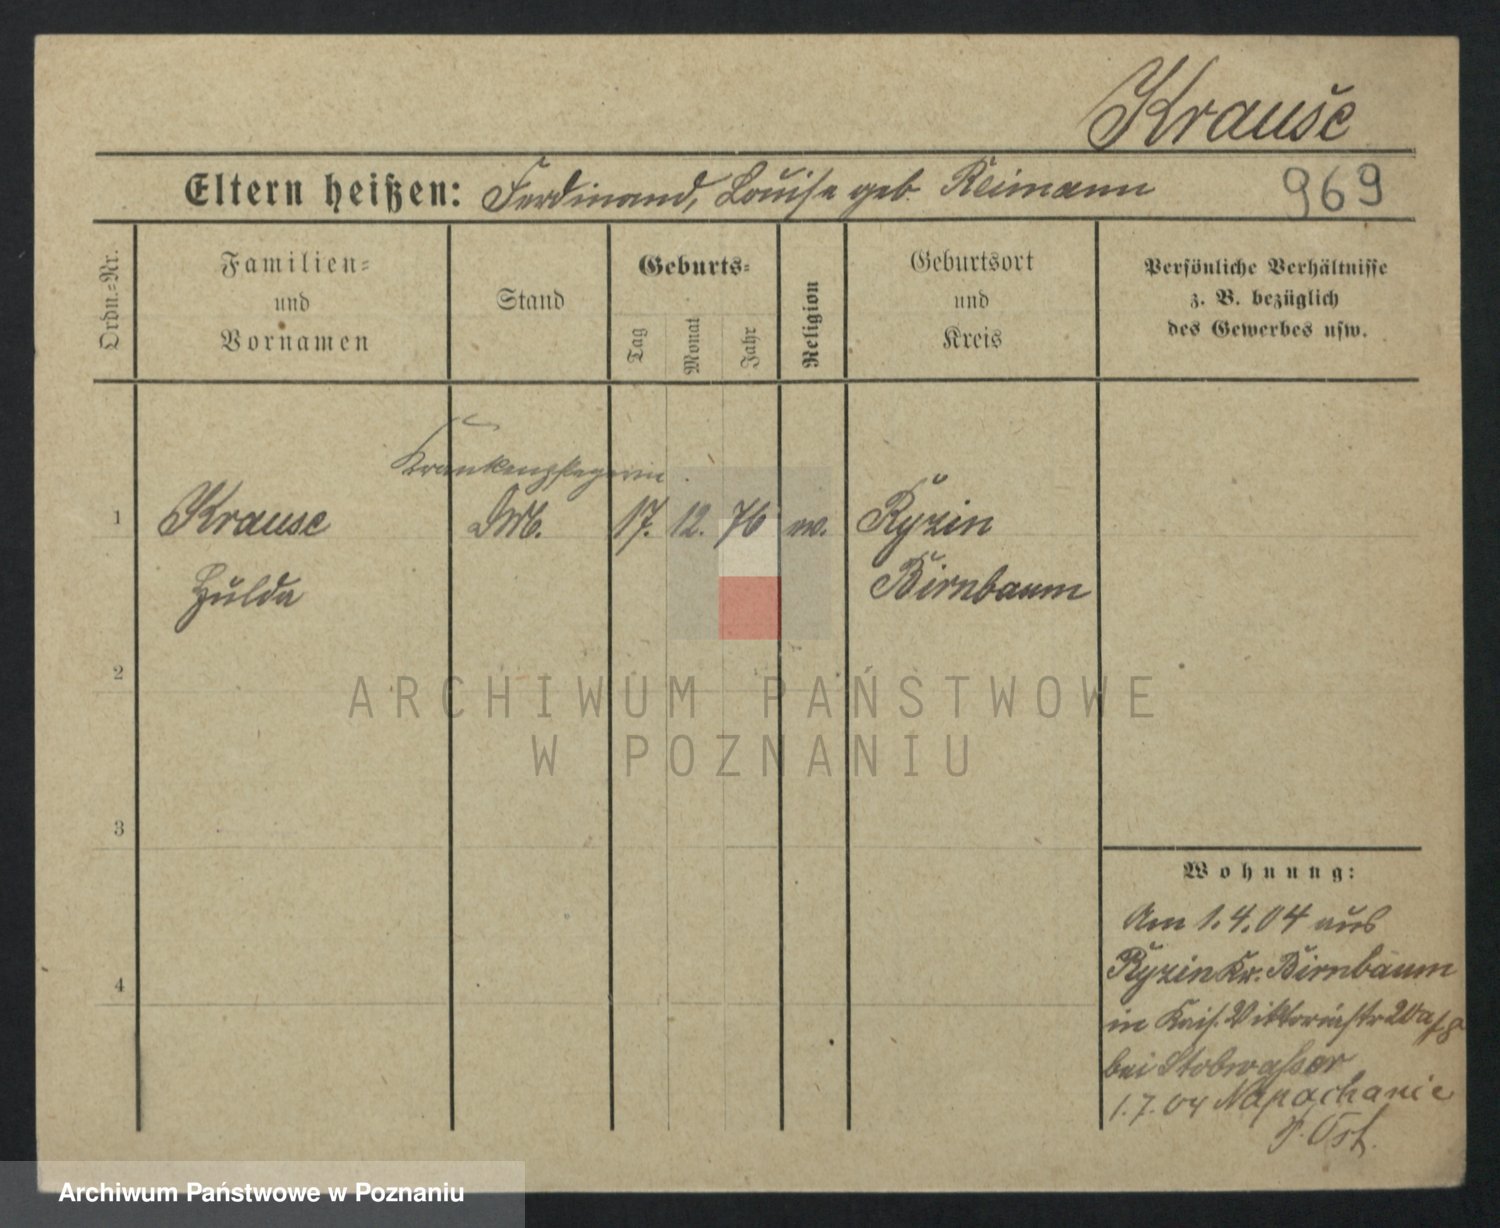 Krause
Eltern heißen: Ferdinand, Louise geb. Reimann 969
Ordn.-Nr.
Familien-
und
Vornamen
Stand
Geburts-
Tag
Monat
Jahr
Religion
Geburtsort
und
Kreis
Persönliche Verhältnisse
z. B. bezüglich
des Gewerbes usw.
Krankenpflegerin
1 Krause 17. 12. 76 Ryzin
Hulda Birnbaum
2
3
4
ARCHIWUM PAŃSTWOWE
W POZNANIU
Wohnung:
Am 1.4.04 aus
Ryzin Kr. Birnbaum
in Kais. Viktoriastr
bei Stobwasser
1.7.04 Napachanie
P. Ost.
Archiwum Państwowe w Poznaniu